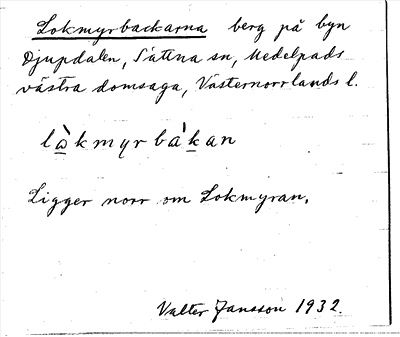 Lokmyrbackarna berg på byn
Djupdalen, Sättna sn, Medelpads
västra domsaga, Västernorrlands l.
là̱kmyrbàḵan
Ligger norr om Lokmyran.
Valter Jansson 1932.